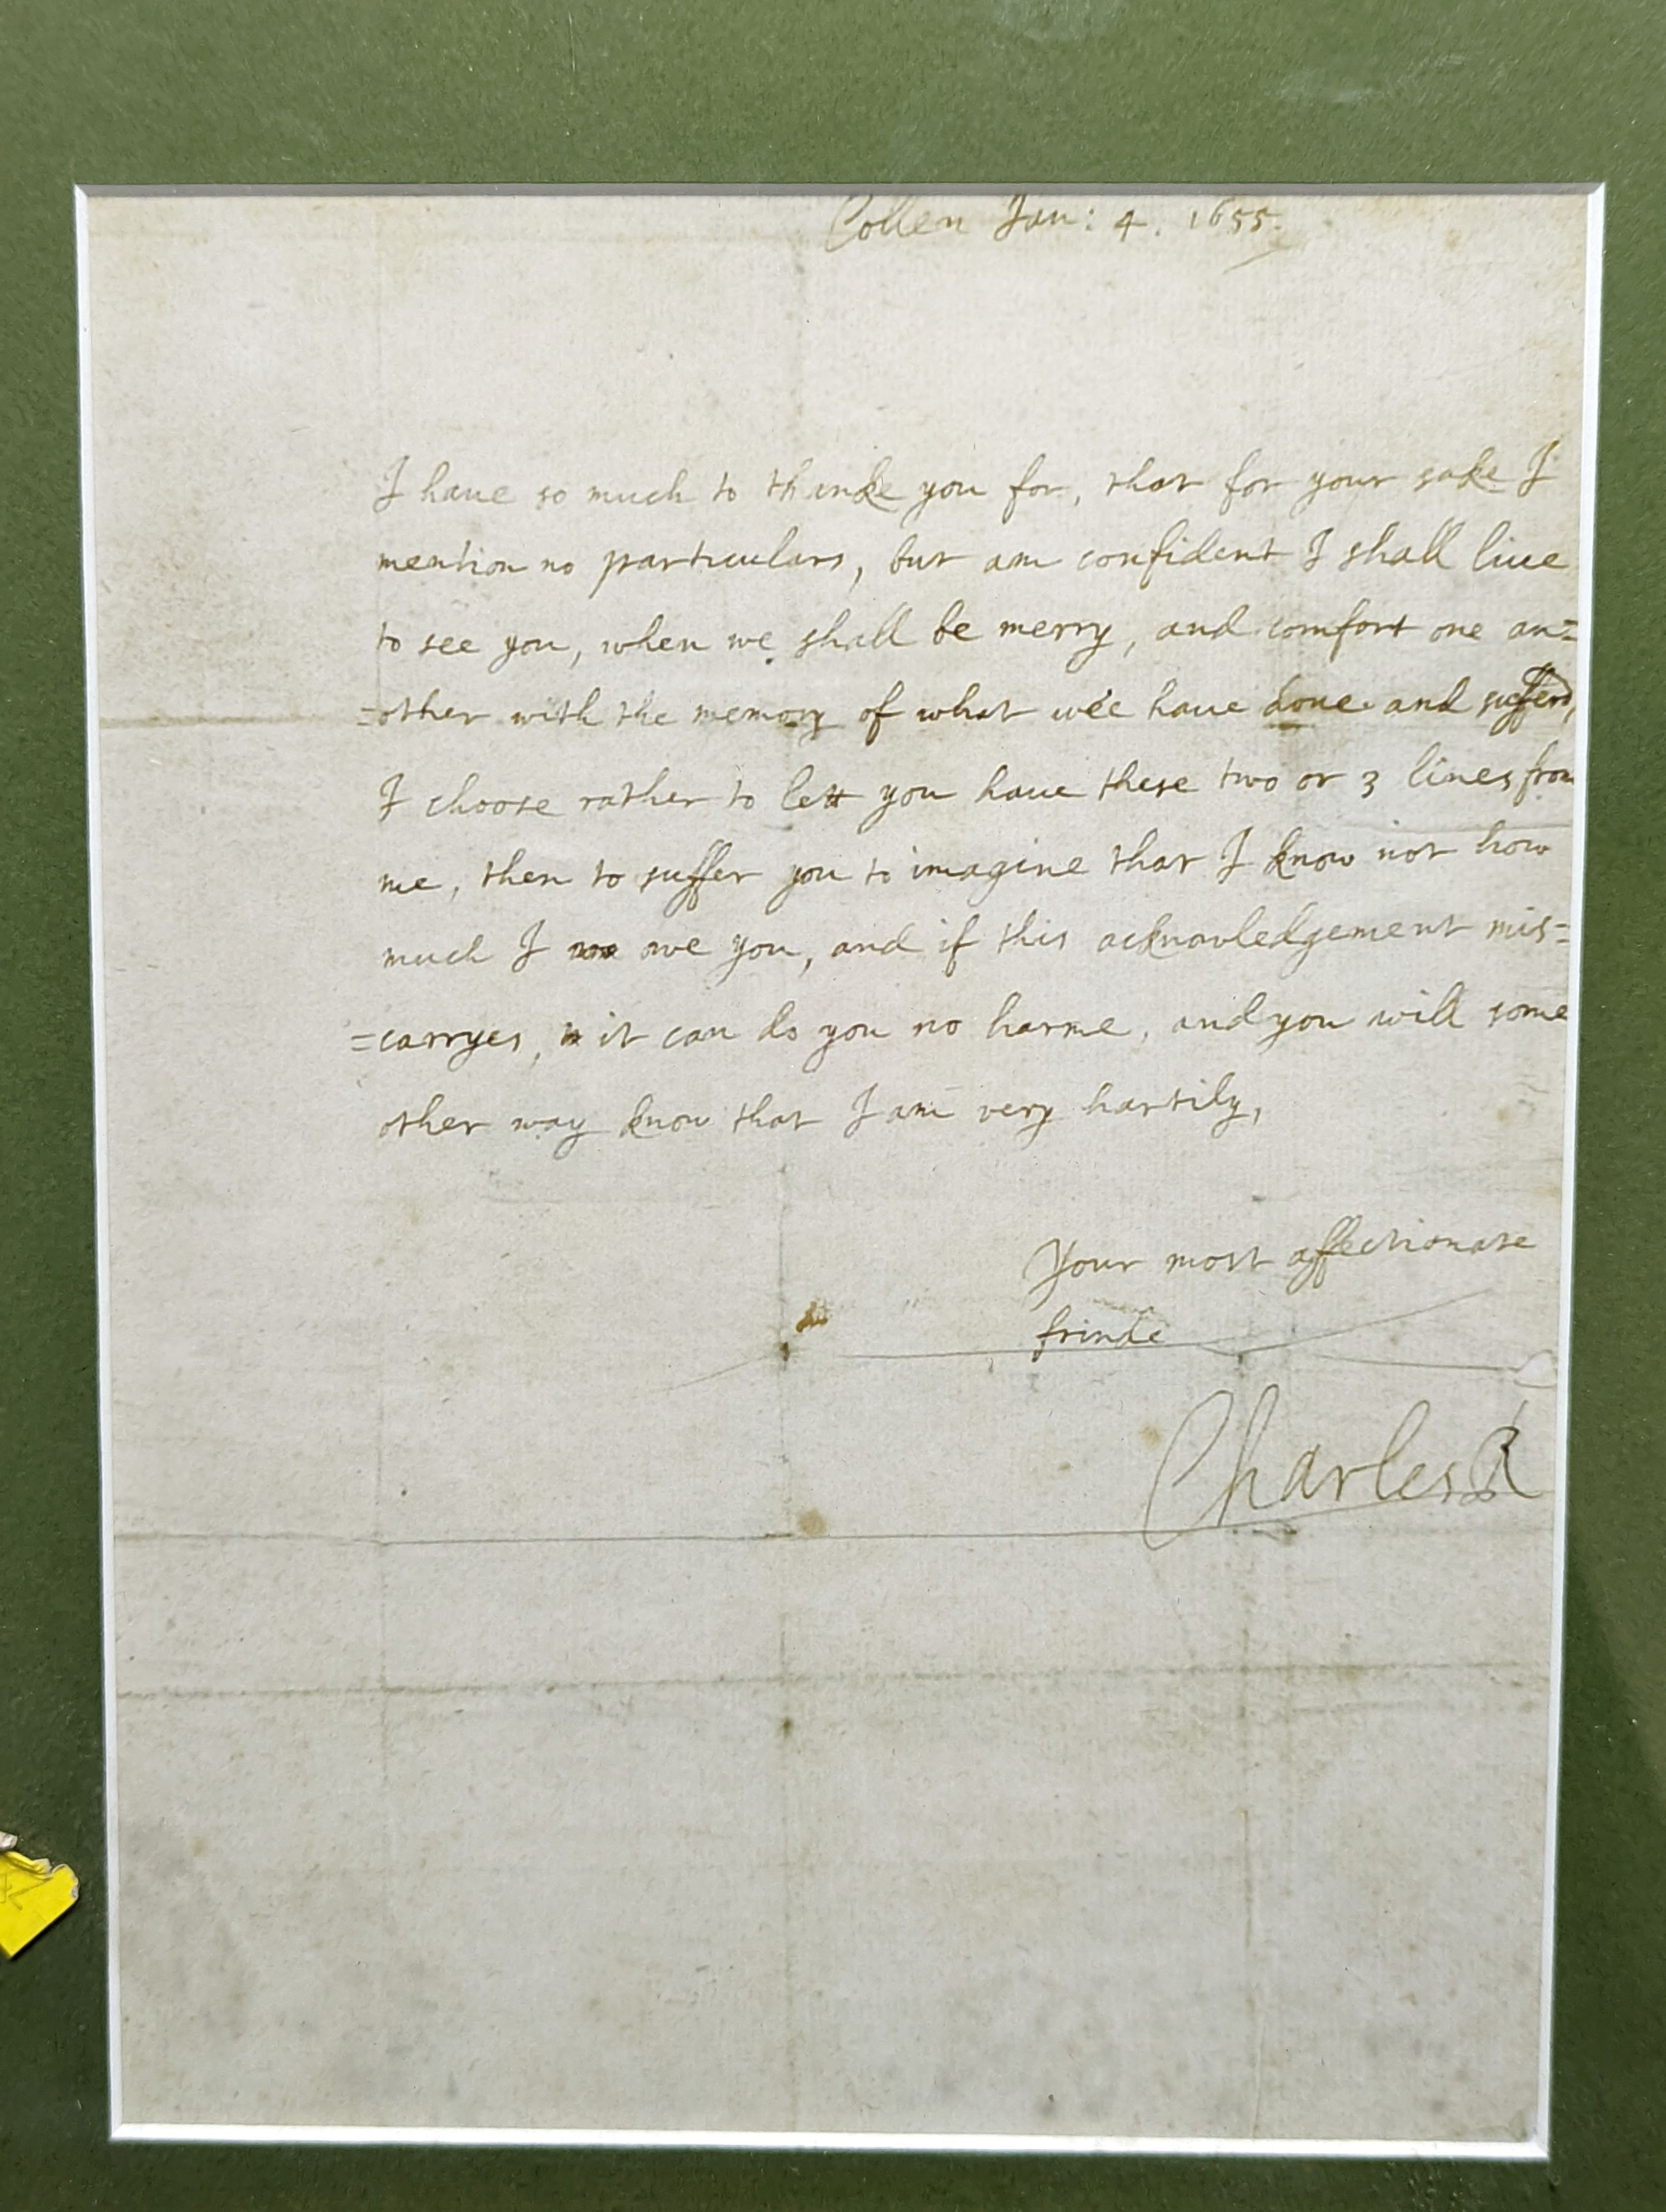 Collen Jan: 4. 1655.
I haue so much to thanke you for, that for your sake I
mention no particulars, but am confident I shall liue
to see you, when we shall be merry, and comfort one an=
=other with the memory of what wee haue done and sufferd,
I choose rather to lett you haue these two or 3 lines from
me, then to suffer you to imagine that I know not how
much I owe you, and if this acknowledgement mis=
=carryes, it can do you no harme, and you will some
other way know that I am very hartily,
Your most affectionate
frinde
Charles R